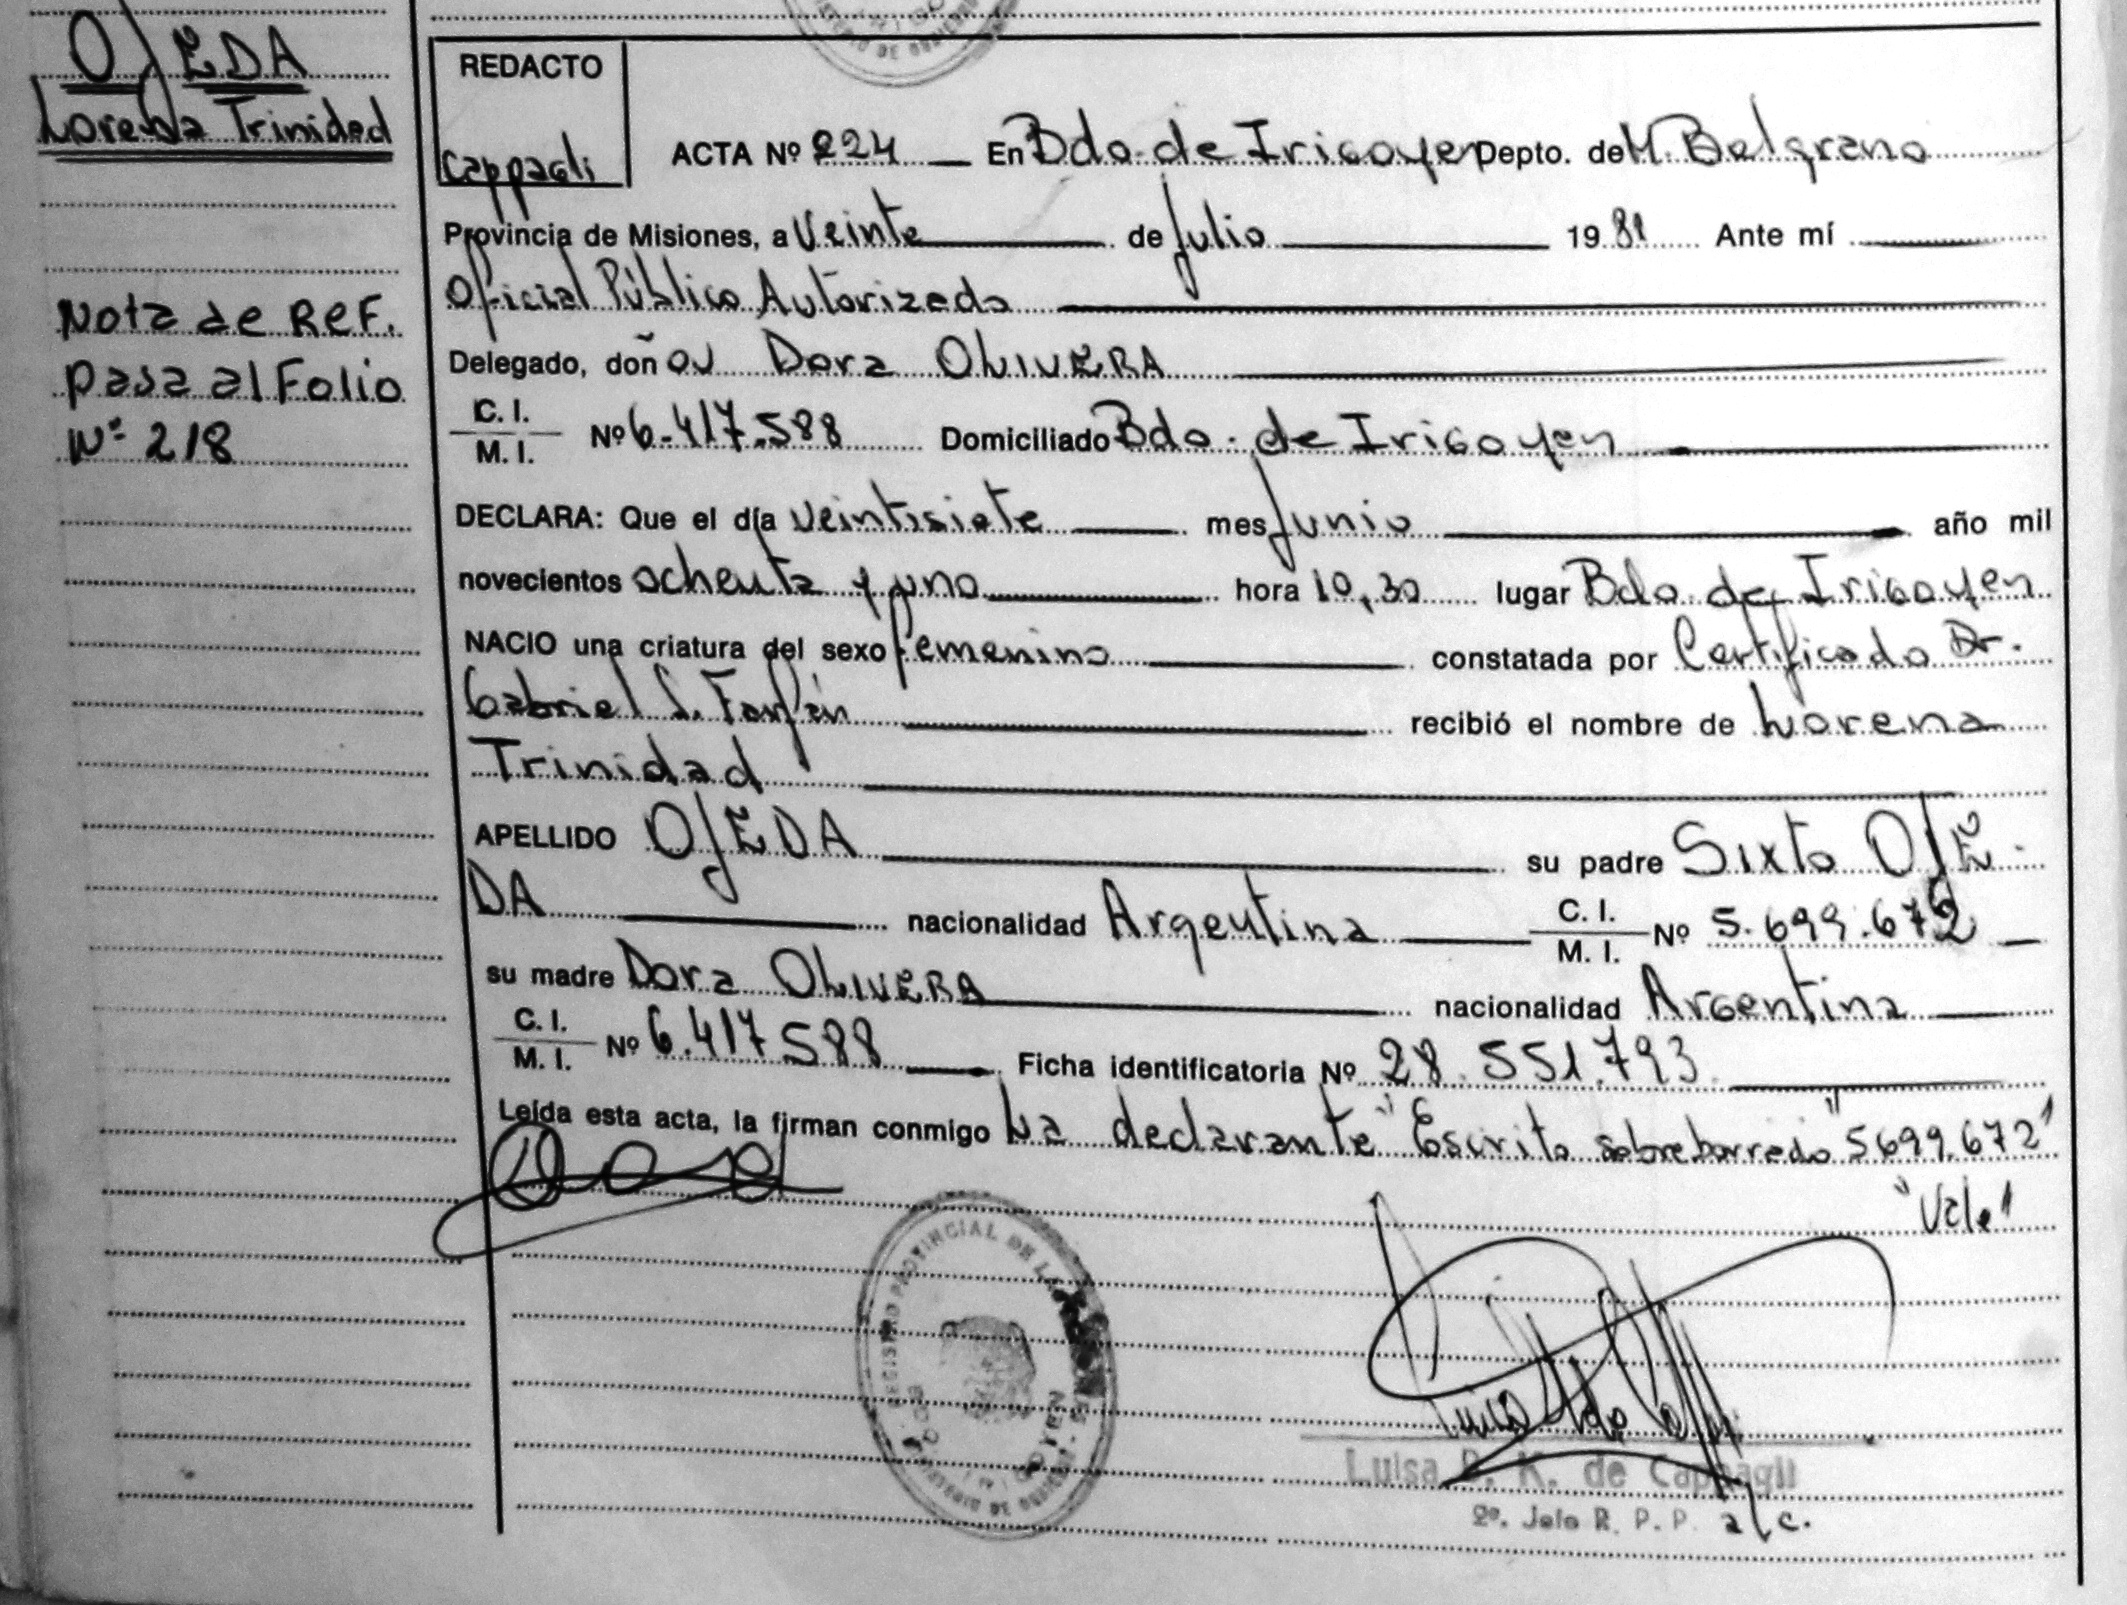 OJEDA
Lorena Trinidad
Nota de REF.
pasa al Folio
Nº 218
REDACTO
Cappagli
ACTA Nº 224 En Bdo. de Irigoyen Depto. de M. Belgrano
Provincia de Misiones, a Veinte de Julio 19 81 Ante mí
Oficial Público Autorizado
Delegado, doñ Dora OLIVERA
C. I.
M. I. Nº 6.417.588 Domiciliado Bdo. de Irigoyen
DECLARA: Que el día Veintisiete mes Junio año mil
novecientos ochenta y uno hora 10,30 lugar Bdo. de Irigoyen
NACIO una criatura del sexo femenino constatada por Certificado Dr.
Gabriel S. Farfán recibió el nombre de Lorena
Trinidad
APELLIDO OJEDA su padre Sixto OJE-
DA nacionalidad Argentina C. I.
M. I. Nº 5.699.672
su madre Dora OLIVERA nacionalidad Argentina
C. I.
M. I. Nº 6.417.588 Ficha identificatoria Nº 28.551.793
Leída esta acta, la firman conmigo La declarante "Escrito sobreborrado" 5699.672"
"Vale"
REGISTRO PROVINCIAL DE LAS
Luisa K. de Cappagli
2º. Jefe R. P. P. a/c.